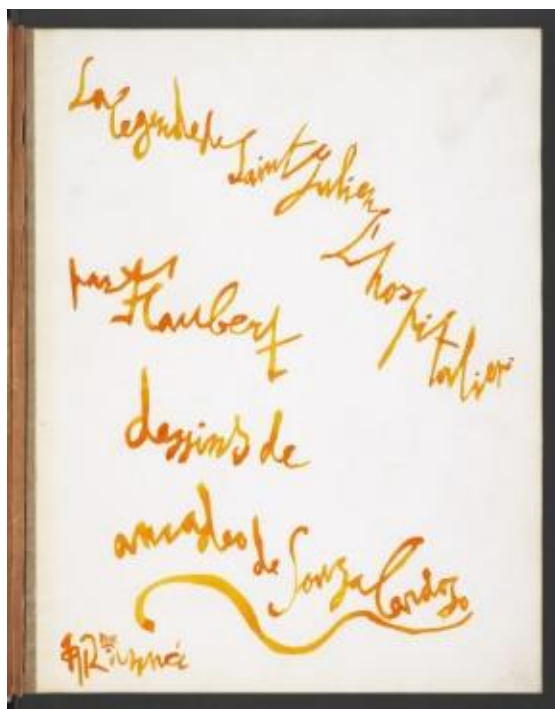 La Légende de Saint Julien L'hospitalier
par Flaubert
dessins de
amadeo de Souza Cardozo